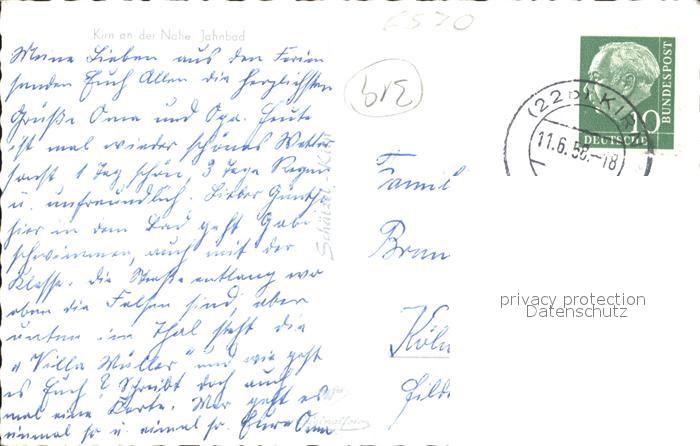 6570
Kirn an der Nahe Jahnbad
Meine Lieben aus den Ferien
senden Euch Allen die herzlichsten
Grüße Oma und Opa. Heute
ist mal wieder schönes Wetter
sonst 1 Tag schön, 3 Tage Regen
u. unfreundlich. Lieber Günther
hier in dem Bad geht Gabi
schwimmen, auch mit der
Klasse. die Straße entlang wo
oben die Felsen sind, aber
unten im Thal steht die
"Villa Müller" und wie geht
es Euch? Schreibt doch auch
mal eine Karte. Mir geht es
einmal so u. einmal so. Eure Oma
DEUTSCHE
BUNDESPOST
10
(22b) KIRN
11.6.58.-18
Famil
Brun
Köln
privacy protection
Datenschutz